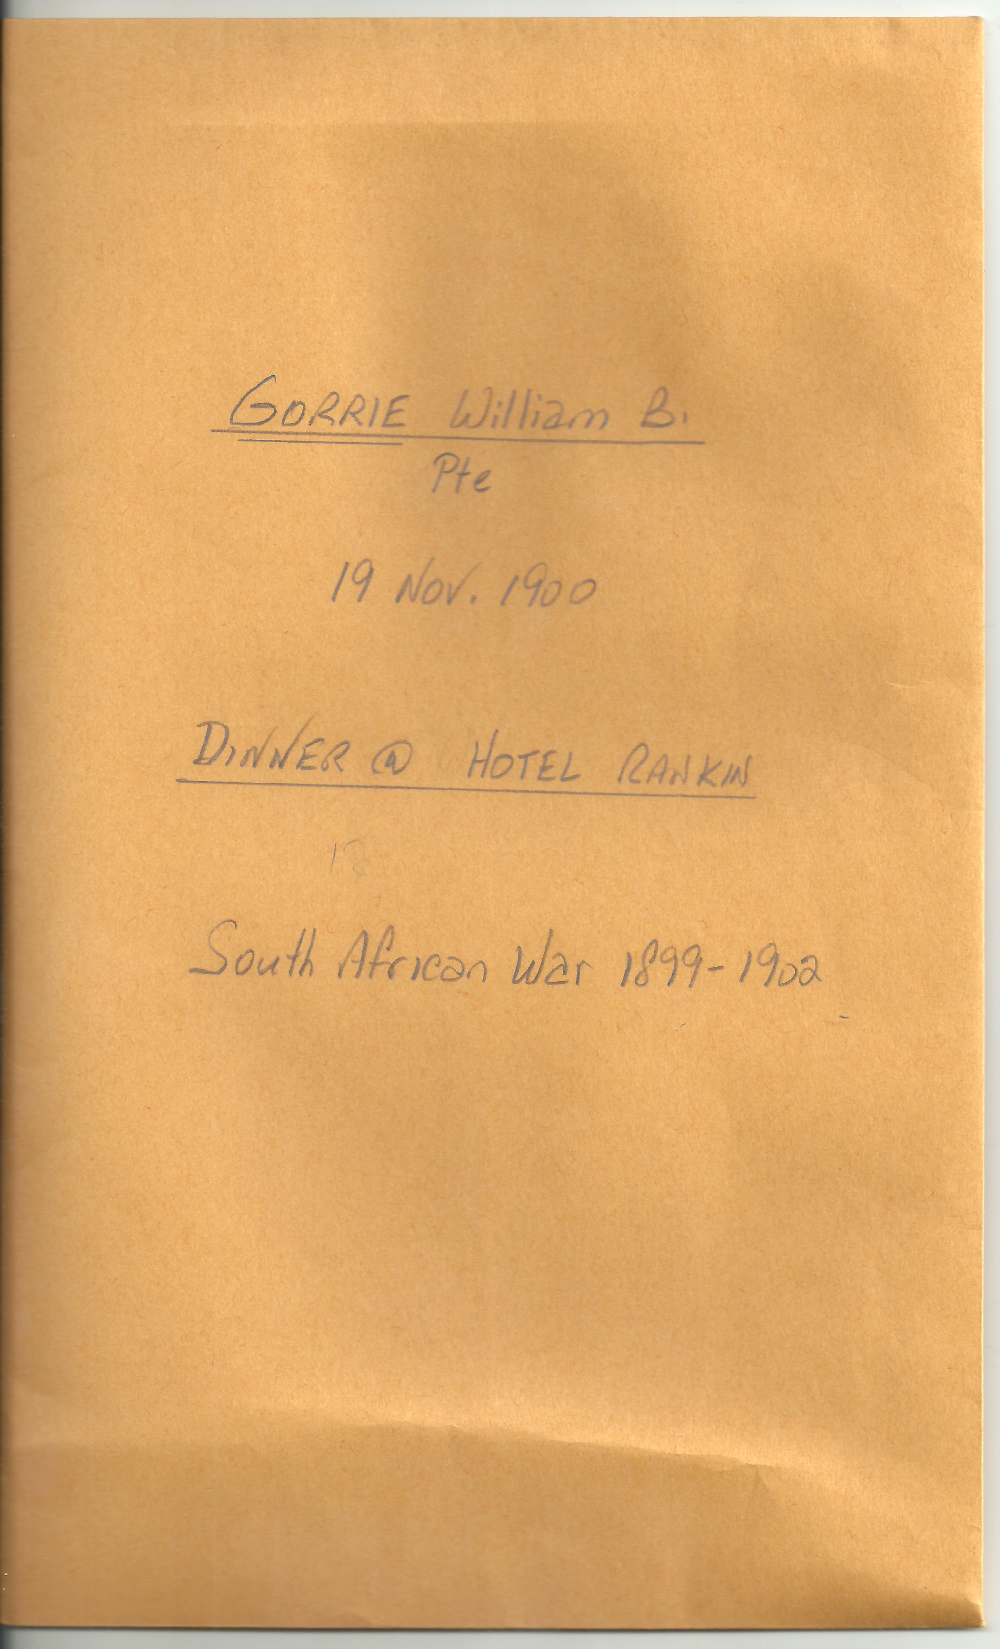 GORRIE William B.
Pte
19 Nov. 1900
DINNER @ HOTEL RANKIN
South African War 1899-1902